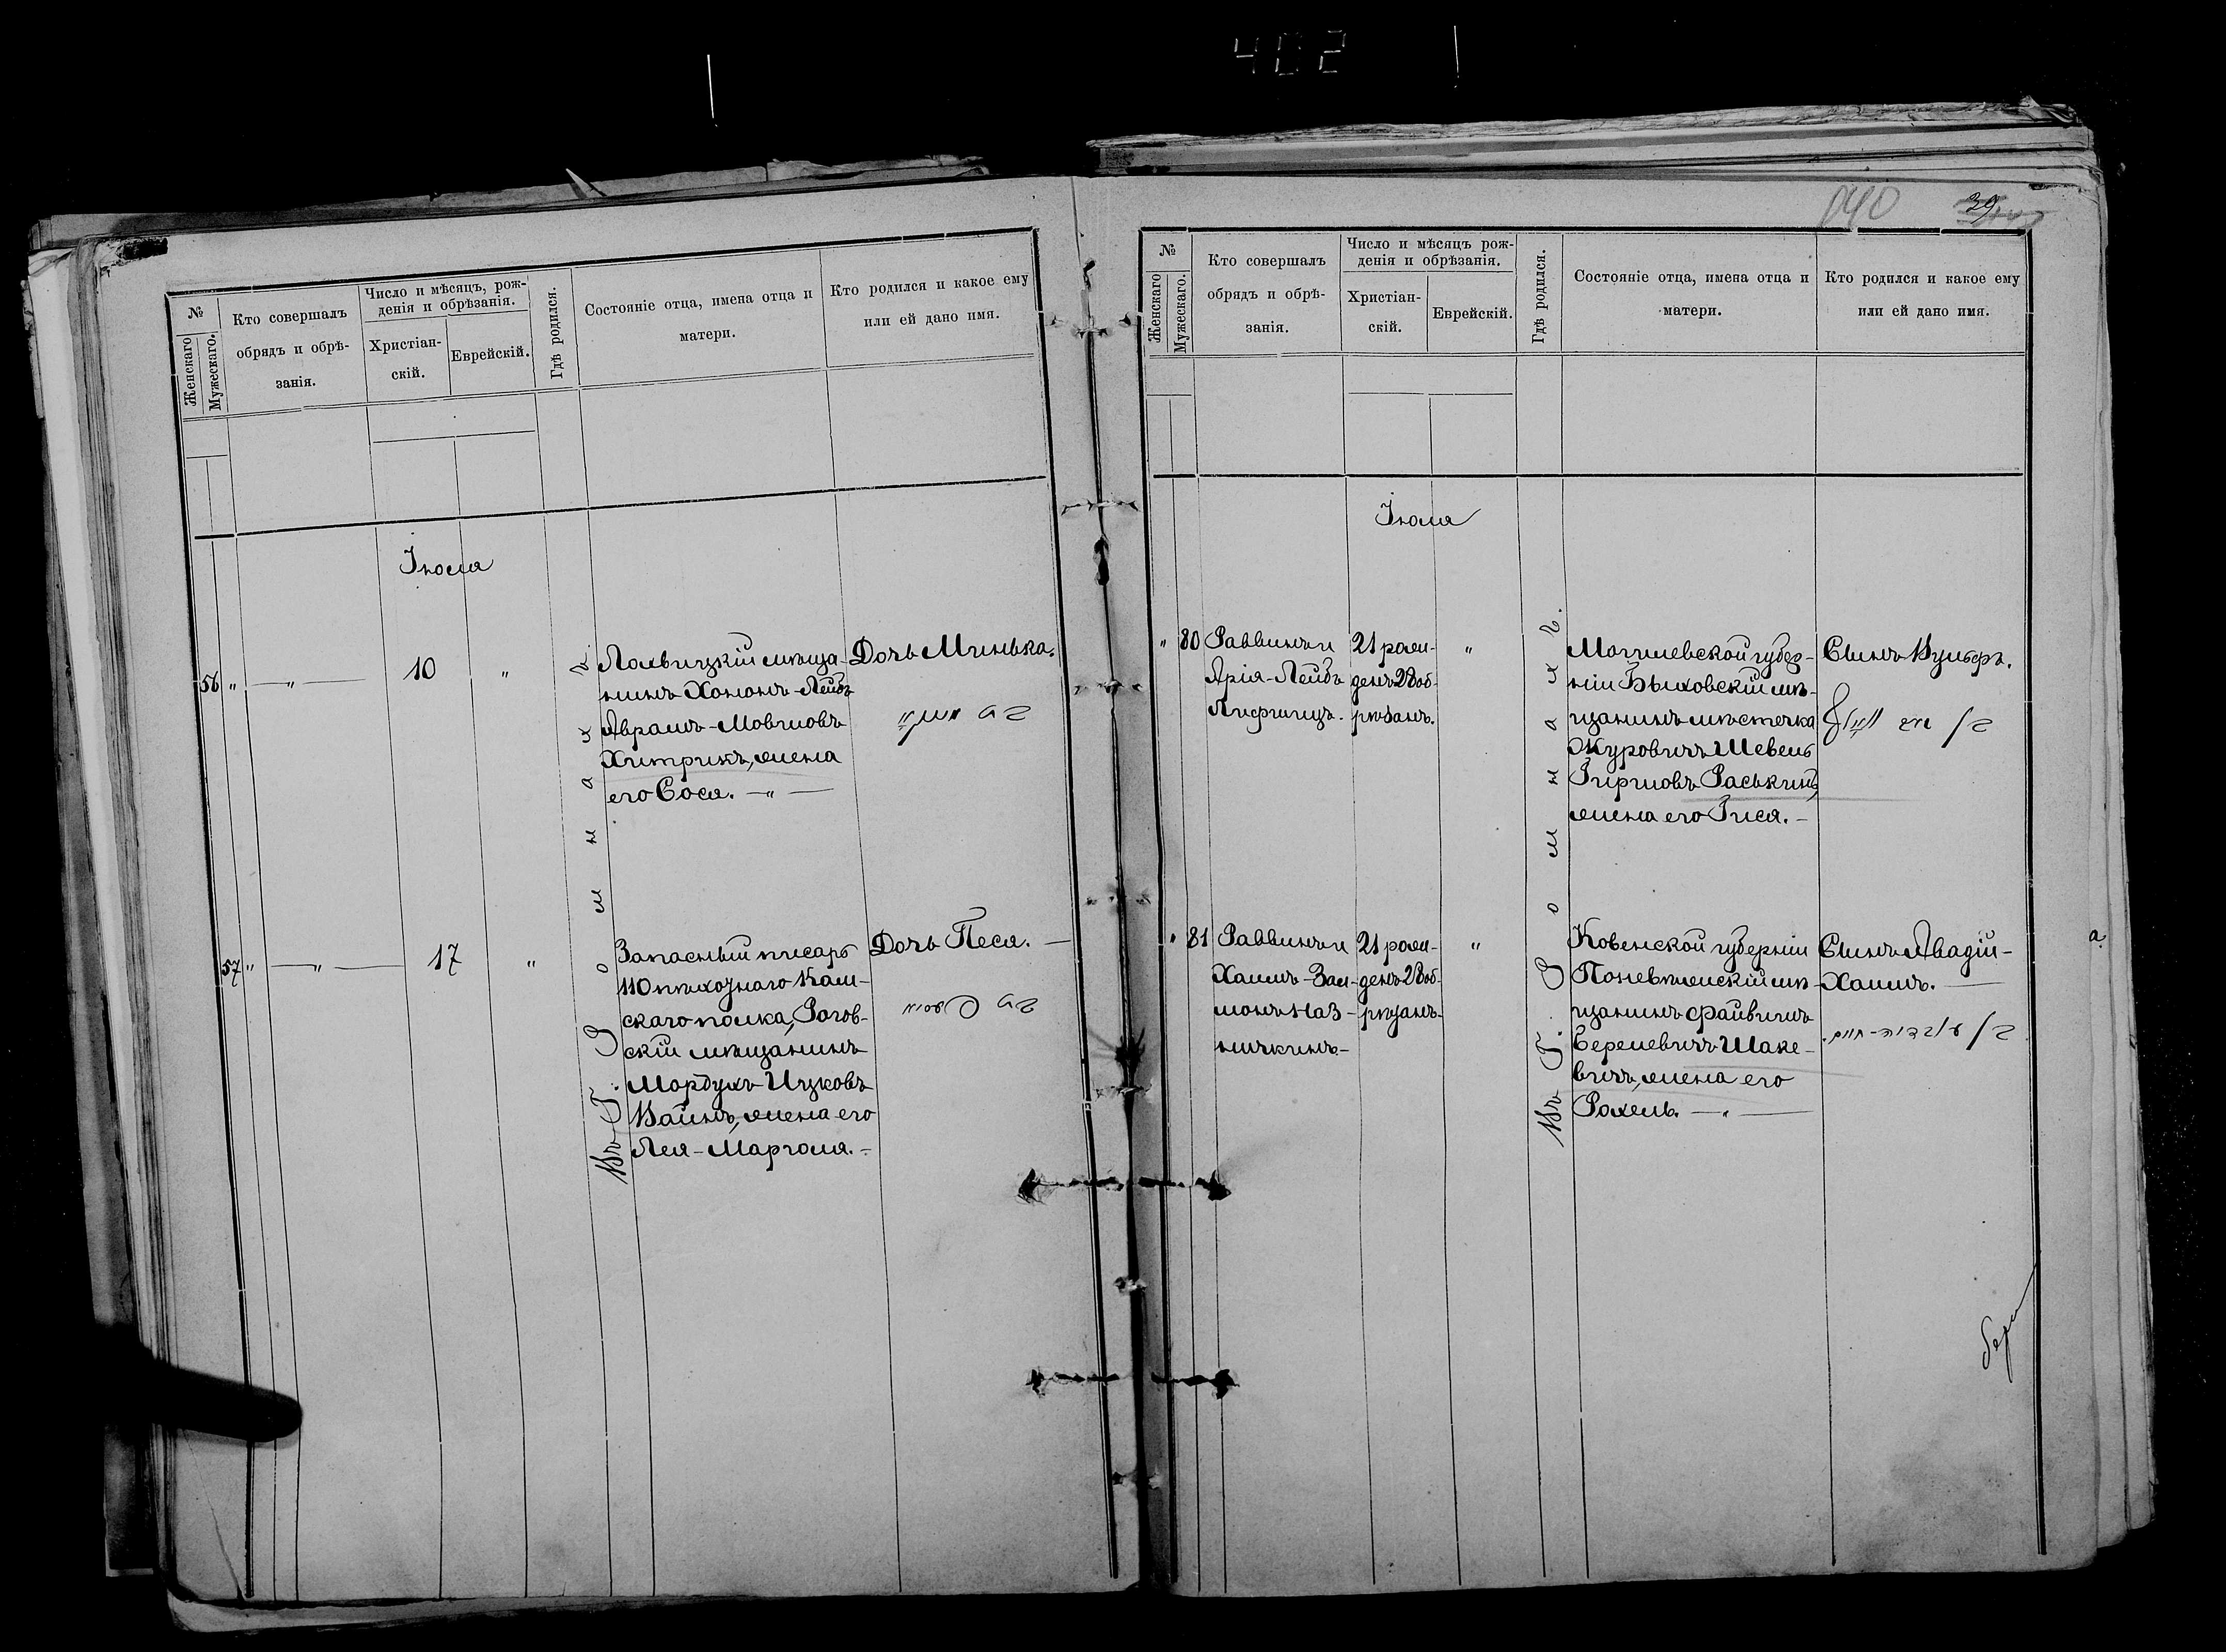 402
№
Женскаго
Мужескаго.
Кто совершалъ
обрядъ и обрѣ-
занія.
Число и мѣсяцъ, рож-
денія и обрѣзанія.
Христіан-
скій.
Еврейскій.
Гдѣ родился.
Состояніе отца, имена отца и
матери.
Кто родился и какое ему
или ей дано имя.
Іюля
56 " — " — 10 "
Въ Г. Романахъ
нинъ Хононъ-Лейбъ
Абрамъ-Мовшовъ
Хитрикъ, жена
его Сося. — " —
Дочь Минька.
57 " — " — 17 "
Запасный писарь
110 пѣхотнаго Кам-
скаго полка, Рогов-
скій мѣщанинъ
Мордухъ Ицковъ
Вайнъ, жена его
Лея-Маргола. —
Дочь Песя. —
040
39
№
Женскаго
Мужескаго.
Кто совершалъ
обрядъ и обрѣ-
занія.
Число и мѣсяцъ рож-
денія и обрѣзанія.
Христіан-
скій.
Еврейскій.
Гдѣ родился.
Состояніе отца, имена отца и
матери.
Кто родился и какое ему
или ей дано имя.
Іюля
" 80 Раввинъ и
Арія-Лейбъ
Лифшицъ.
21 рож-
денъ 28 об-
рѣзанъ.
"
Въ Г. Романахъ.
Могилевской губер-
ніи Быховскій мѣ-
щанинъ мѣстечка
Журовичъ Шевель
Гиршовъ Раськинъ,
жена его Гися. —
Сынъ Вульфъ.
" 81 Раввинъ и
Хаимъ-Зал-
монъ Наз-
ничкинъ —
21 рож-
денъ 28 об-
рѣзанъ.
"
Ковенской губерніи
Поневѣжскій мѣ-
щанинъ Файвишъ
Берелевичъ Шаке-
вичъ, жена его
Рохель. — " —
Сынъ Авадій-
Хаимъ. —
а